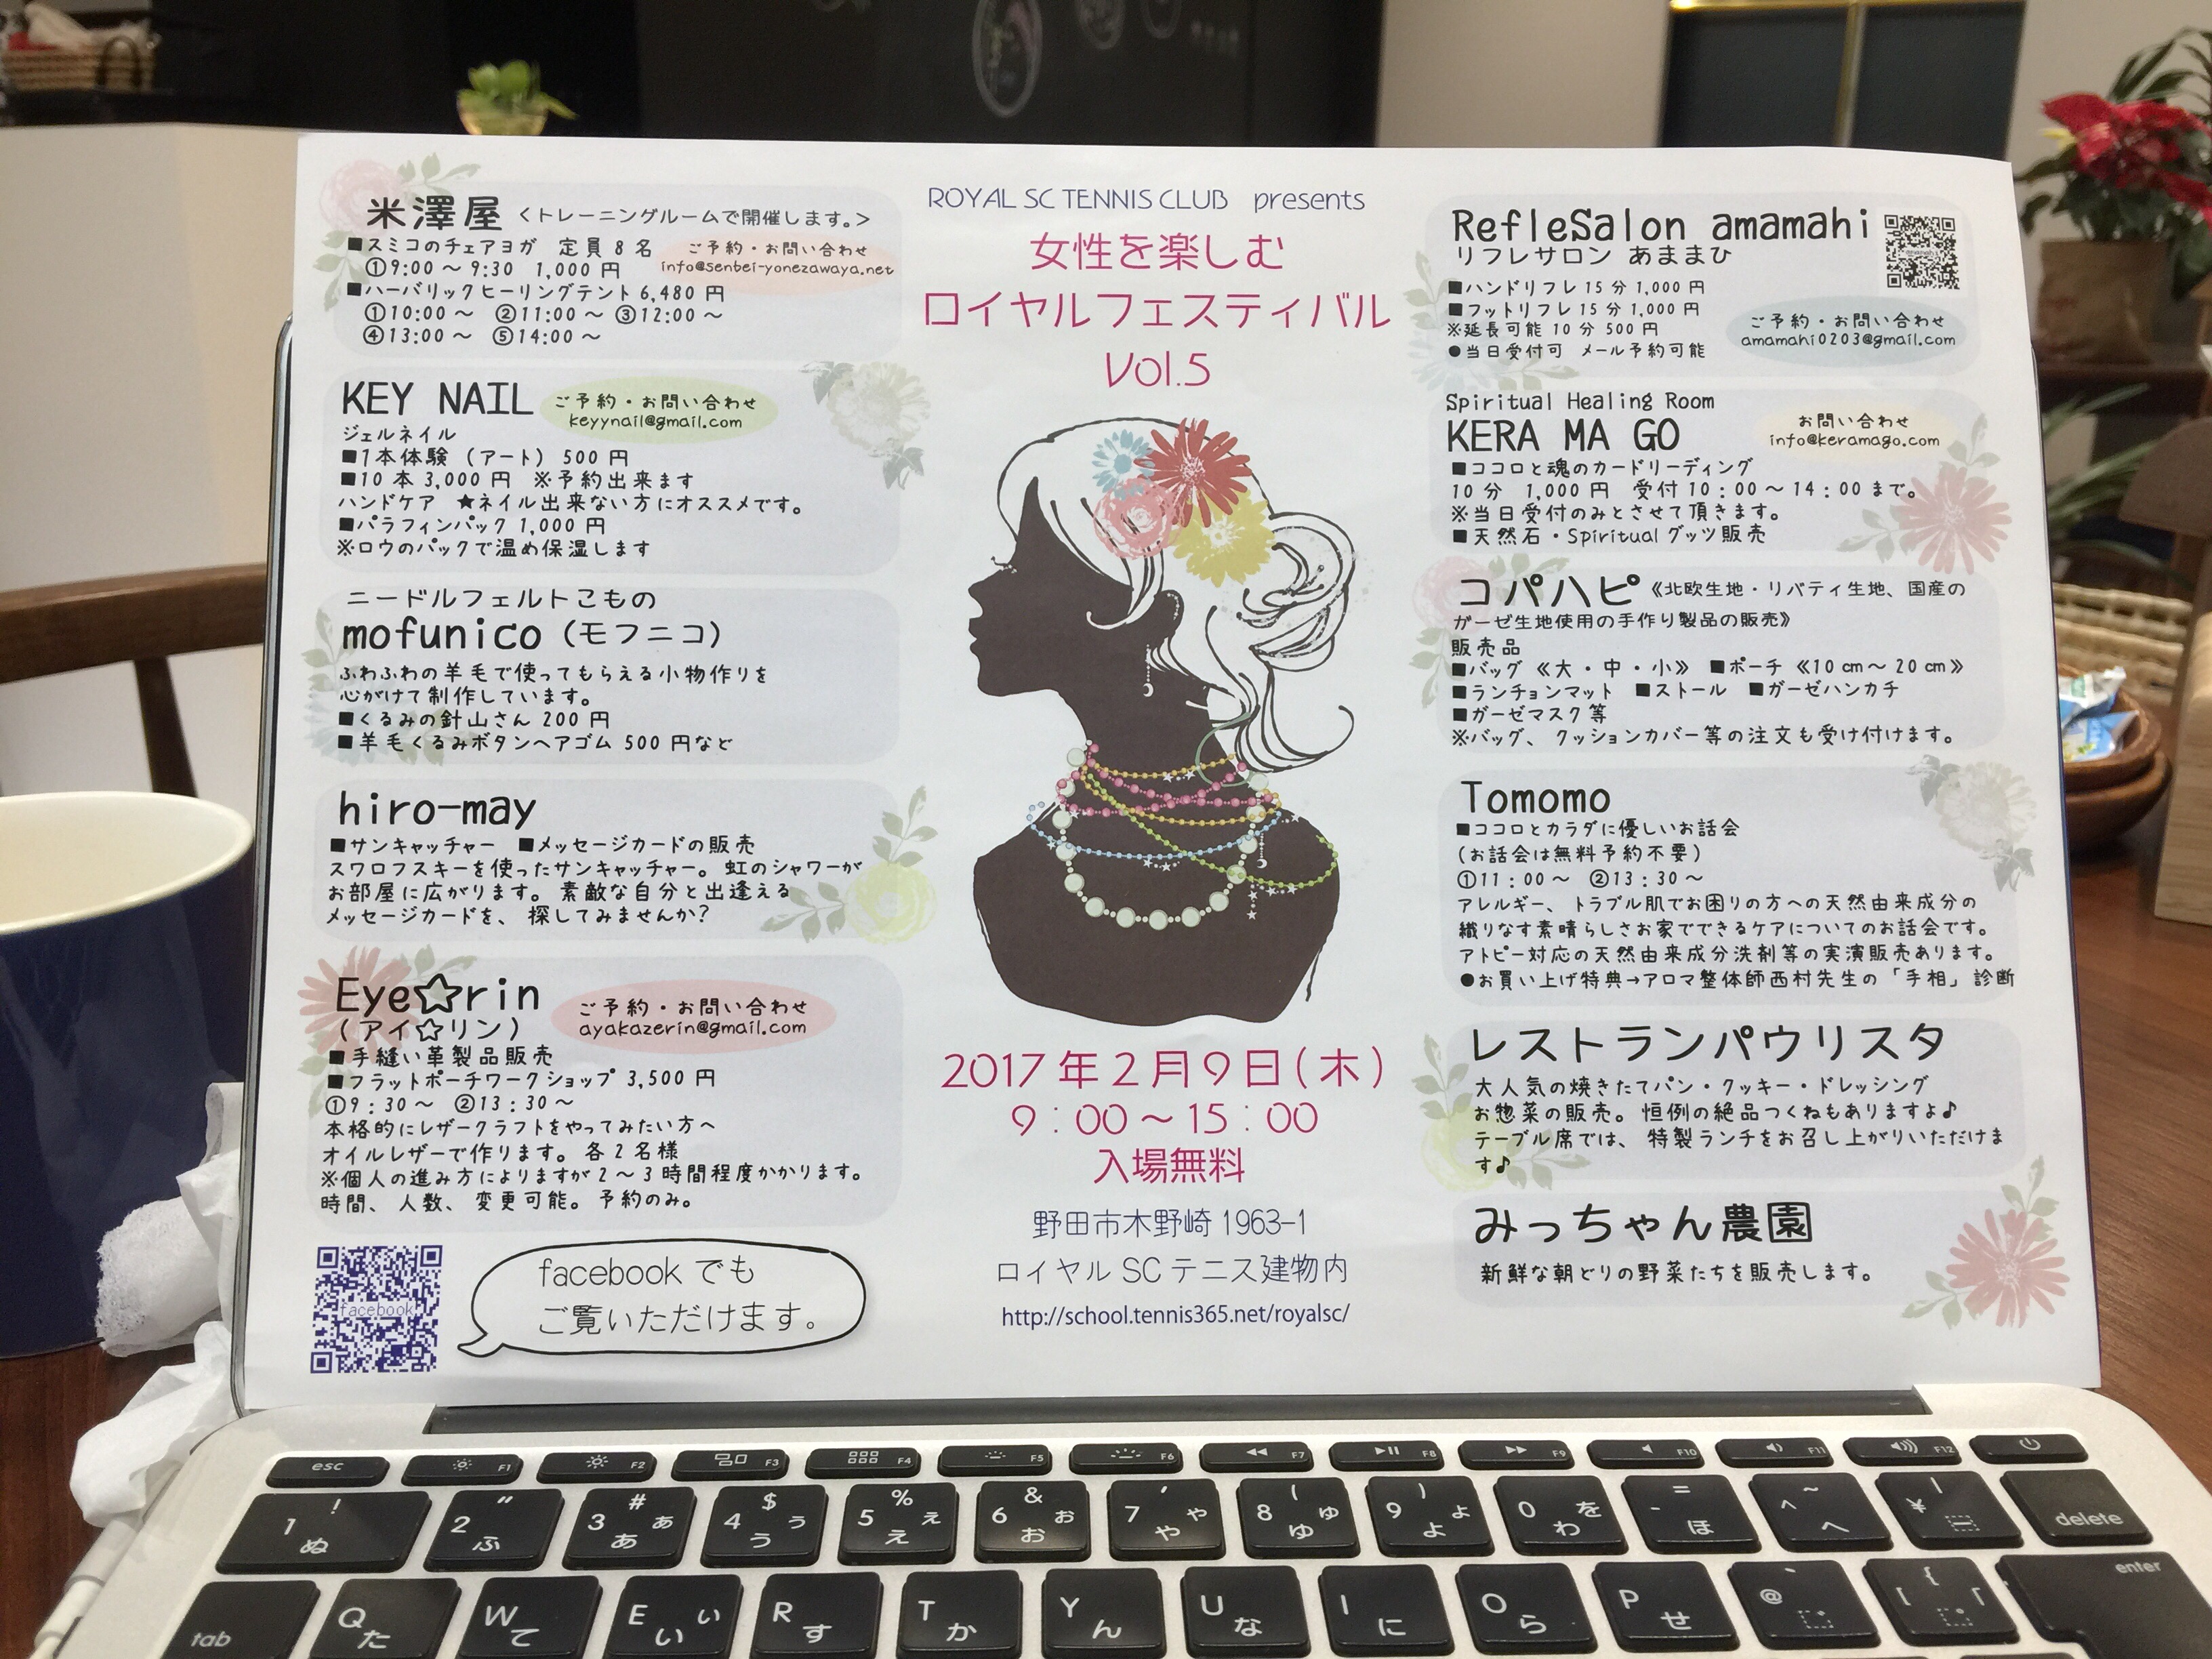 米澤屋 <トレーニングルームで開催します。>
■スミコのチェアヨガ 定員 8 名
①9:00 ～ 9:30 1,000 円
ご予約・お問い合わせ
info@senbei-yonezawaya.net
■ハーバリックヒーリングテント 6,480 円
①10:00 ～ ②11:00 ～ ③12:00 ～
④13:00 ～ ⑤14:00 ～
KEY NAIL
ご予約・お問い合わせ
keyynail@gmail.com
ジェルネイル
■1本体験（アート）500 円
■10 本 3,000 円 ※予約出来ます
ハンドケア ★ネイル出来ない方にオススメです。
■パラフィンパック 1,000 円
※ロウのパックで温め保湿します
ニードルフェルトこもの
mofunico（モフニコ）
ふわふわの羊毛で使ってもらえる小物作りを
心がけて制作しています。
■くるみの針山さん 200 円
■羊毛くるみボタンヘアゴム 500 円など
hiro-may
■サンキャッチャー ■メッセージカードの販売
スワロフスキーを使ったサンキャッチャー。虹のシャワーが
お部屋に広がります。素敵な自分と出逢える
メッセージカードを、探してみませんか？
Eye☆rin
（アイ☆リン）
ご予約・お問い合わせ
ayakazerin@gmail.com
■手縫い革製品販売
■フラットポーチワークショップ 3,500 円
①9：30 ～ ②13：30 ～
本格的にレザークラフトをやってみたい方へ
オイルレザーで作ります。各 2 名様
※個人の進み方によりますが 2 ～ 3 時間程度かかります。
時間、人数、変更可能。予約のみ。
facebook
facebook でも
ご覧いただけます。
ROYAL SC TENNIS CLUB presents
女性を楽しむ
ロイヤルフェスティバル
Vol.5
2017 年 2 月 9 日（木）
9：00 ～ 15：00
入場無料
野田市木野崎 1963-1
ロイヤル SC テニス建物内
http://school.tennis365.net/royalsc/
RefleSalon amamahi
リフレサロン あままひ
■ハンドリフレ 15 分 1,000 円
■フットリフレ 15 分 1,000 円
※延長可能 10 分 500 円
●当日受付可 メール予約可能
ご予約・お問い合わせ
amamahi0203@gmail.com
Spiritual Healing Room
KERA MA GO
お問い合わせ
info@keramago.com
■ココロと魂のカードリーディング
10 分 1,000 円 受付 10：00 ～ 14：00 まで。
※当日受付のみとさせて頂きます。
■天然石・Spiritual グッツ販売
コパハピ《北欧生地・リバティ生地、国産の
ガーゼ生地使用の手作り製品の販売》
販売品
■バッグ《大・中・小》 ■ポーチ《10 cm～ 20 cm》
■ランチョンマット ■ストール ■ガーゼハンカチ
■ガーゼマスク等
※バッグ、クッションカバー等の注文も受け付けます。
Tomomo
■ココロとカラダに優しいお話会
（お話会は無料予約不要）
①11：00 ～ ②13：30 ～
アレルギー、トラブル肌でお困りの方への天然由来成分の
織りなす素晴らしさお家でできるケアについてのお話会です。
アトピー対応の天然由来成分洗剤等の実演販売あります。
●お買い上げ特典→アロマ整体師西村先生の「手相」診断
レストランパウリスタ
大人気の焼きたてパン・クッキー・ドレッシング
お惣菜の販売。恒例の絶品つくねもありますよ♪
テーブル席では、特製ランチをお召し上がりいただけま
す♪
みっちゃん農園
新鮮な朝どりの野菜たちを販売します。
esc F1 F2 F3 F4 F5 F6 F7 F8 F9 F10 F11 F12
! 1 ぬ " 2 ふ # 3 ぁ あ $ 4 ぅ う % 5 ぇ え & 6 ぉ お ' 7 ゃ や ( 8 ゅ ゆ ) 9 ょ よ 0 を わ = - ほ ~ ^ へ | ¥ ー delete
tab Q た W て E ぃ い R す T か Y ん U な I に O ら P せ ` @ { [ 「 enter